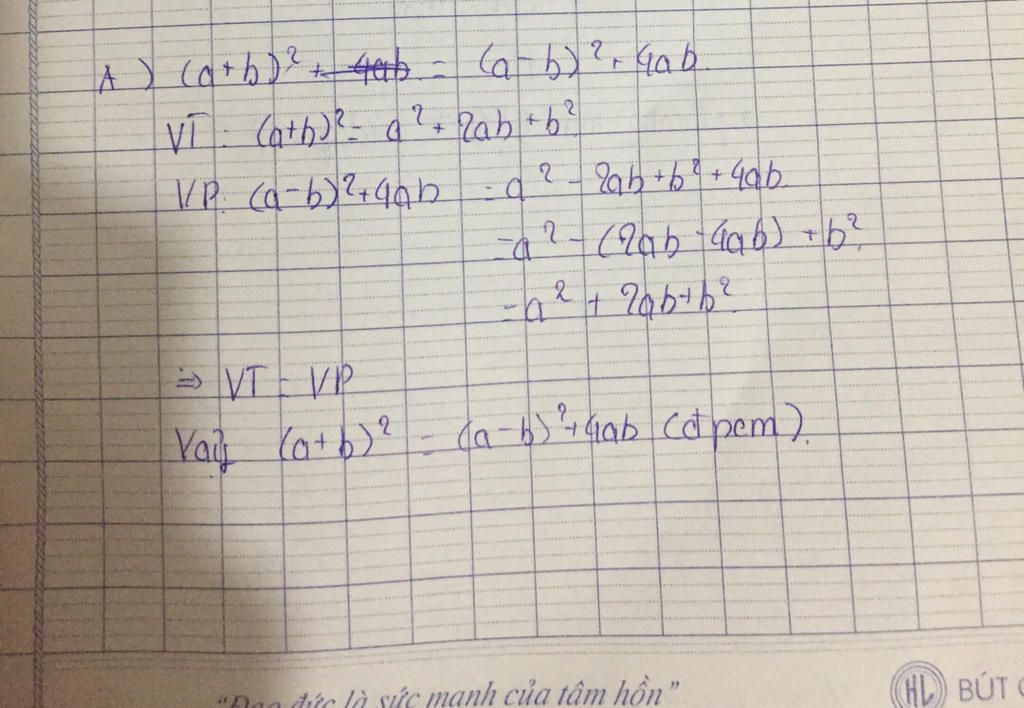 A) (a+b)² = (a-b)² + 4ab
VT: (a+b)² = a² + 2ab + b²
VP: (a-b)² + 4ab = a² - 2ab + b² + 4ab
= a² - (2ab - 4ab) + b²
= a² + 2ab + b²
⇒ VT = VP
Vậy (a+b)² = (a-b)² + 4ab (đpcm).
"Đạo đức là sức mạnh của tâm hồn"
HL BÚT